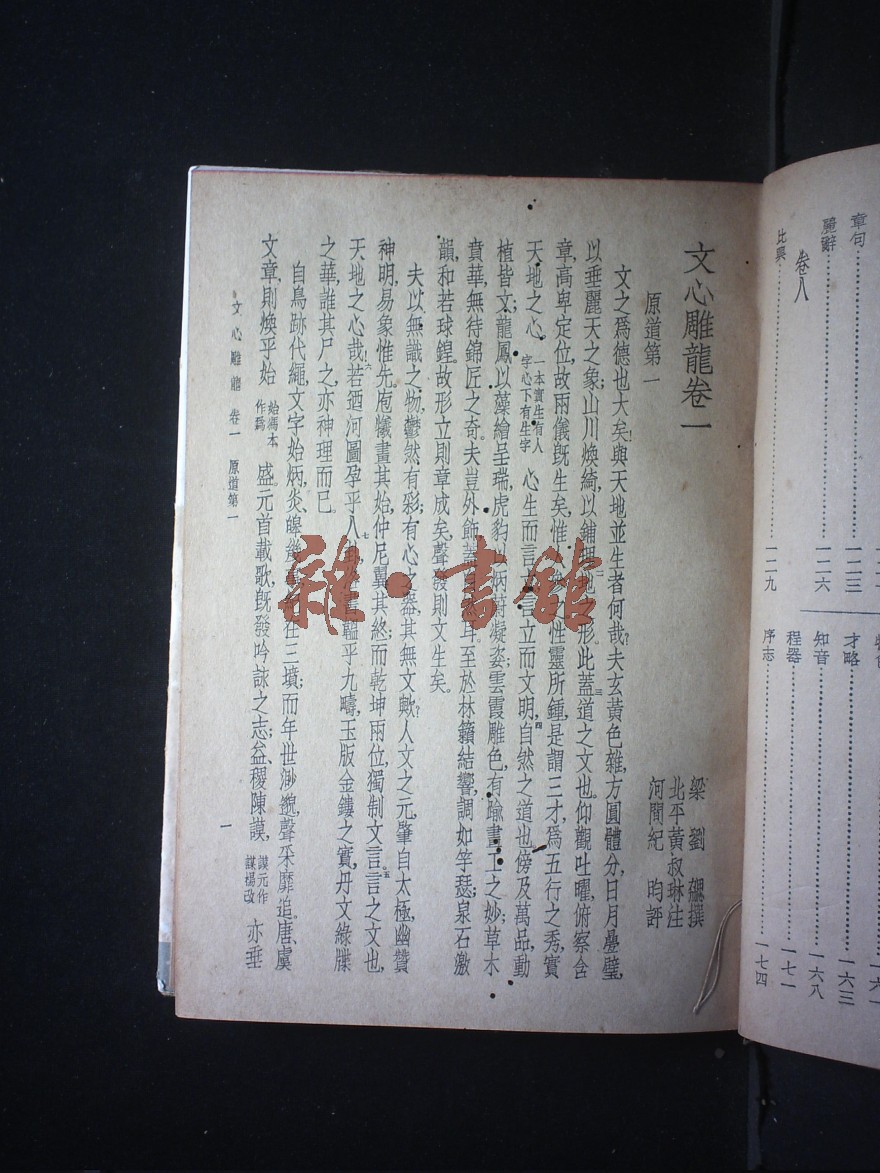 章句……一二三
麗辭……一二六
卷八
比興……一二九
才略……一六三
知音……一六八
程器……一七一
序志……一七四
文心雕龍卷一
梁 劉 勰撰
北平黃叔琳注
河間紀 昀評
原道第一
文之爲德也大矣,與天地並生者何哉?夫玄黃色雜,方圓體分,日月疊璧,
以垂麗天之象;山川煥綺,以鋪理地之形:此蓋道之文也。仰觀吐曜,俯察含
章,高卑定位,故兩儀既生矣。惟 性靈所鍾,是謂三才,爲五行之秀,實
天地之心。一本實生有人字心下有生字 心生而言立,言立而文明,自然之道也。傍及萬品,動
植皆文,龍鳳以藻繪呈瑞,虎豹以炳蔚凝姿;雲霞雕色,有踰畫工之妙;草木
賁華,無待錦匠之奇。夫豈外飾,蓋自然耳。至於林籟結響,調如竽瑟;泉石激
韻,和若球鍠。故形立則章成矣,聲發則文生矣。
夫以無識之物,鬱然有彩;有心之器,其無文歟?人文之元,肇自太極,幽贊
神明,易象惟先,庖犧畫其始,仲尼翼其終;而乾坤兩位,獨制文言,言之文也,
天地之心哉!若迺河圖孕乎八卦, 韞乎九疇,玉版金鏤之實,丹文綠牒
之華,誰其尸之,亦神理而已。
自鳥跡代繩,文字始炳,炎皥 在三墳;而年世渺邈,聲采靡追。唐、虞
文章,則煥乎始 始馮本作爲 盛。元首載歌,既發吟詠之志;益、稷陳謨,謨元作謀楊改 亦垂
文心雕龍 卷一 原道第一
一
雜·書館